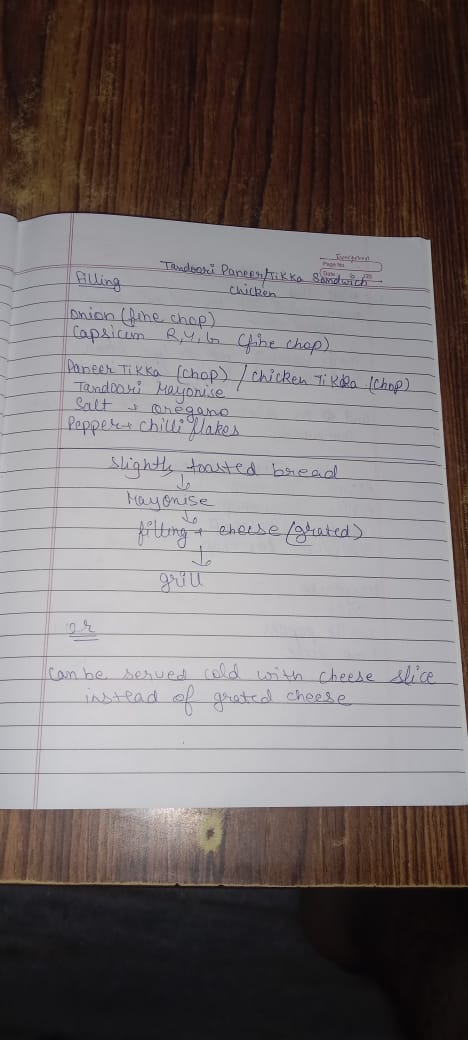 Evergreen
Page No.
Date
Tandoori Paneer/Tikka Sandwich
chicken
filling
onion (fine chop)
Capsicum R, Y, G (fine chop)
Paneer Tikka (chop) / chicken Tikka (chop)
Tandoori Mayonise
Salt + oregano
Pepper + chilli flakes
slightly toasted bread
↓
Mayonise
↓
filling + cheese (grated)
↓
grill
or
can be served cold with cheese slice
instead of grated cheese